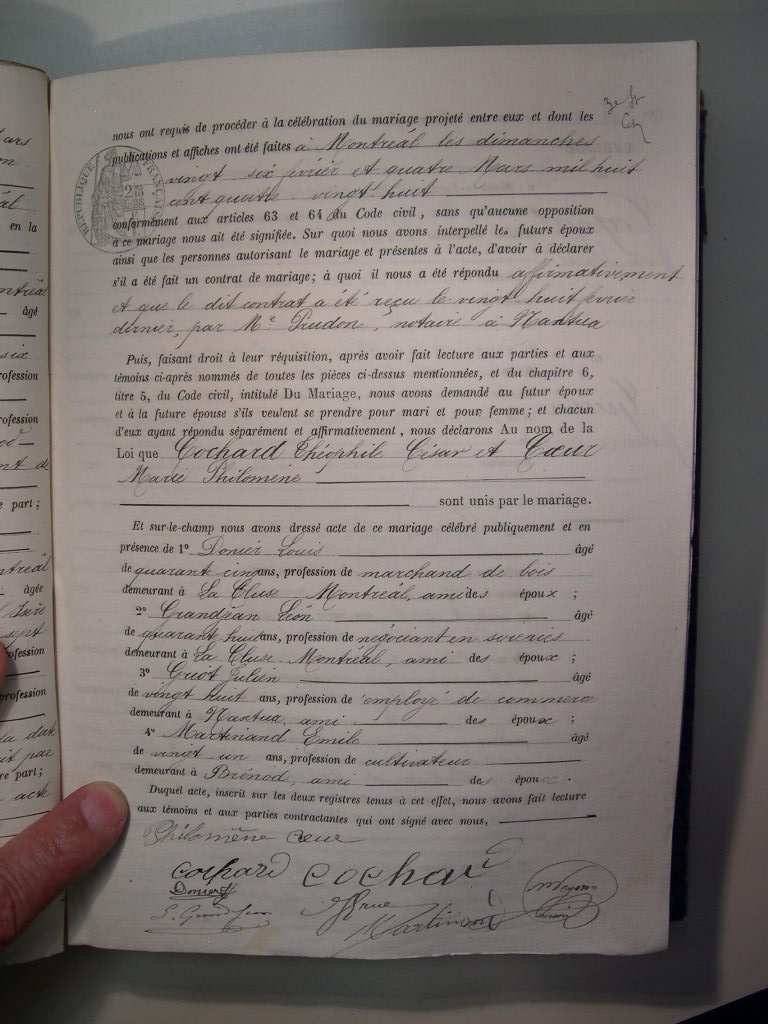 nous ont requis de procéder à la célébration du mariage projeté entre eux et dont les
publications et affiches ont été faites à Montréal les dimanches
vingt six févrièr et quatre Mars mil huit
cent quatre-vingt-huit
RÉPUBLIQUE FRANÇAISE
conformément aux articles 63 et 64 du Code civil, sans qu'aucune opposition
à ce mariage nous ait été signifiée. Sur quoi nous avons interpellé les futurs époux
ainsi que les personnes autorisant le mariage et présentes à l'acte, d'avoir à déclarer
s'il a été fait un contrat de mariage; à quoi il nous a été répondu affirmativement
et que le dit contrat a été reçu le vingt huit février
dernier, par Me Prudon, notaire à Nantua
Puis, faisant droit à leur réquisition, après avoir fait lecture aux parties et aux
témoins ci-après nommés de toutes les pièces ci-dessus mentionnées, et du chapitre 6,
titre 5, du Code civil, intitulé Du Mariage, nous avons demandé au futur époux
et à la future épouse s'ils veulent se prendre pour mari et pour femme; et chacun
d'eux ayant répondu séparément et affirmativement, nous déclarons Au nom de la
Loi que Cochard Théophile César et Cœur
Marie Philomène
sont unis par le mariage.
Et sur-le-champ nous avons dressé acte de ce mariage célébré publiquement et en
présence de 1° Donier Louis âgé
de quarant cinq ans, profession de marchand de bois
demeurant à La Cluse Montréal, ami des époux;
2° Grandjean Léon âgé
de quarant huit ans, profession de négociant en soieries
demeurant à La Cluse Montréal, ami des époux;
3° Guot Julien âgé
de vingt huit ans, profession de employé de commerce
demeurant à Nantua, ami des époux;
4° Martinand Emile âgé
de vingt un ans, profession de cultivateur
demeurant à Brénod, ami des époux.
Duquel acte, inscrit sur les deux registres tenus à cet effet, nous avons fait lecture
aux témoins et aux parties contractantes qui ont signé avec nous,
Philomène Cœur
Cochard Cochard
Donier
L. Grandjean
Martinand